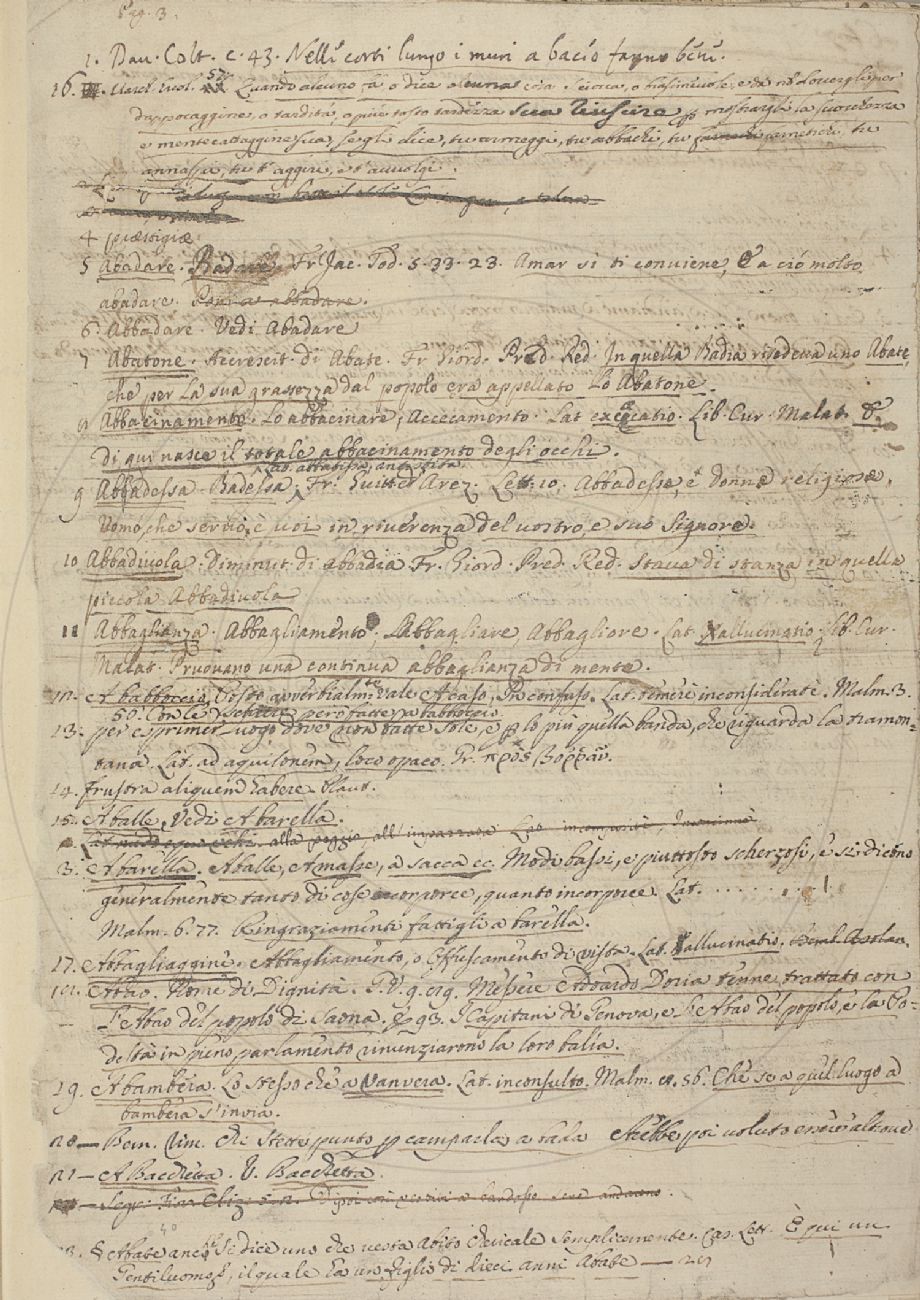 Pag. 3.
1. Dav. Colt. c. 43. Nelle corti lungo i muri a bacio fanno bene.
16. Varch. Ercol. 57. Quando alcuno fa, o dice alcuna cosa sciocca, o biasimevole, e da non dovergli per
dappocaggine, o tardità, o piuttosto tardezza sua riuscire, per mostrargli la sciocchezza
e mentecattaggine sua, se gli dice, tu armeggi, tu abbachi, tu farnetichi, tu
annaspi, tu t'aggiri, e t'avvolgi.
4 præstigiæ
5 Abadare. Badare. Fr. Jac. Tod. 5. 33. 23. Amar si ti conviene, E a ciò molto
abadare.
6. Abbadare. Vedi Abadare
7 Abatone. Accrescit. di Abate. Fr. Giord. Pred. Red. In quella Badia risedeva uno Abate,
che per la sua grassezza dal popolo era appellato Lo Abatone.
8 Abbacinamento. Lo abbacinare, Accecamento. Lat. excæcatio. Lib. Cur. Malat. E
di qui nasce il totale abbacinamento degli occhi.
Lat. abbatissa, antistita.
9 Abbadessa. Badessa, Fr. Guitt. Arez. Lett. 10. Abbadesse, e donne religiose,
Uomo, che servo è voi in riverenza del vostro, e suo Signore.
10 Abbadivola. Diminut. di abbadia Fr. Giord. Pred. Red. Stava di stanza in quella
piccola Abbadivola
11 Abbaglianza. Abbagliamento, L'Abbagliare, Abbagliore. Lat. hallucinatio. Lib. Cur.
Malat. Pruovano una continua abbaglianza di mente.
12. A babboccio, Posto avverbialmte. vale A caso, In confuso. Lat. temere, inconsiderate. Malm. 3.
50. Con le scritture però fatte a babboccio
13. per esprimer luogo dove non batte sole, e p lo più quella banda, che riguarda la tramon=
tana. Lat. ad aquilonem, loco opaco. Gr. πρὸς Βοῤῥᾶν.
14. frustra aliquem habere. Plaut.
15. A balle, Vedi A barella.
3. A barella. A balle, A masse, a sacca ec. Modi bassi, e piuttosto scherzosi, e si dicono
generalmente tanto di cose corporee, quanto incorporee. Lat. . . . . . . . . .
Malm. 6. 77. Ringraziamenti fattigli a barella.
17. Abbagliaggine. Abbagliamento, o Offuscamento di vista. Lat. hallucinatio.
18. Abao. Nome di Dignità. G. V. 9. Messere Edoardo Doria tenne trattato con
l'Abao del popolo di Saona. E 93. I Capitani di Genova, e l'Abao del popolo, e la Po=
destà in pieno parlamento rinunziarono la loro balia.
19. A bambera. Lo stesso che a Vanvera. Lat. inconsulto. Malm. 56. Che se a quel luogo a
bambera s'invia.
20 — Bem. Rim. Che stetti punto p camparla a bada Ch'ebbe poi voluto essere altrove
21 — A Bacchetta. V. Bacchetta.
Abate anche si dice uno che vesta Abito Chericale semplicemente. Cas. Lett. È qui un
Gentiluomo, il quale ha un figlio di dieci anni Abate —